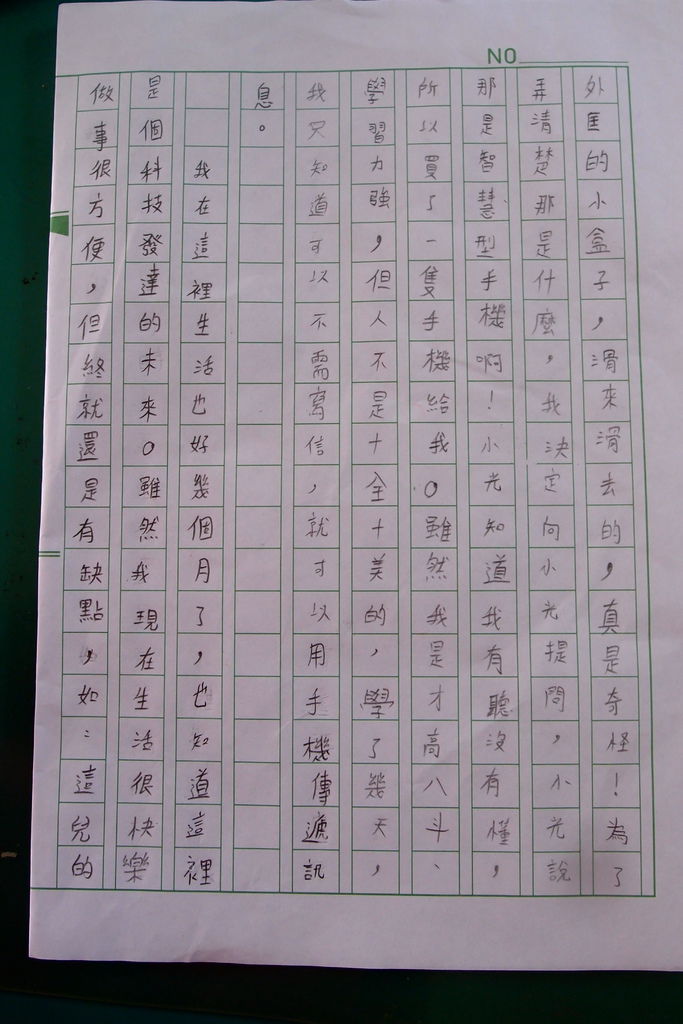 NO
外匡的小盒子，滑來滑去的，真是奇怪！為了
弄清楚那是什麼，我決定向小光提問，小光說
那是智慧型手機啊！小光知道我有聽沒有懂，
所以買了一隻手機給我。雖然我是才高八斗、
學習力強，但人不是十全十美的，學了幾天，
我只知道可以不需寫信，就可以用手機傳遞訊
息。
我在這裡生活也好幾個月了，也知道這裡
是個科技發達的未來。雖然我現在生活很快樂
做事很方便，但終就還是有缺點，如：這兒的